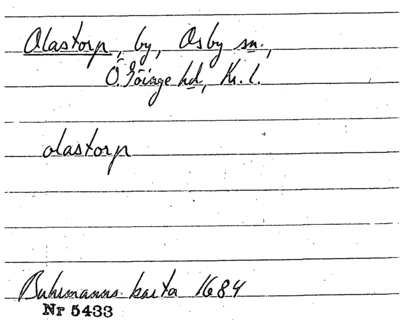 Olastorp, by, Osby sn.,
Ö. Göinge hd, Kr. l.
olastorp
Buhrmanns karta 1684
Nr 5433